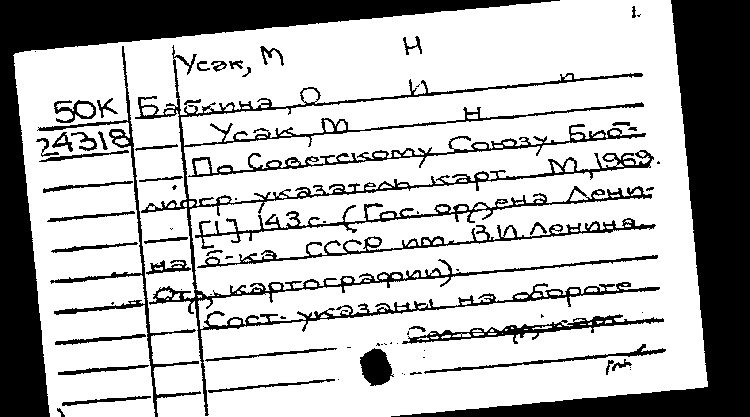 1.
Усак, М Н
50К Бабкина, О И п
24318 Усак, М Н
По Советскому Союзу. Биб-
лиогр. указатель карт. М., 1969.
[1], 143 с. (Гос. ордена Лени-
на б-ка СССР им. В.И. Ленина.
Отд. картографии).
Сост. указаны на обороте
карт.